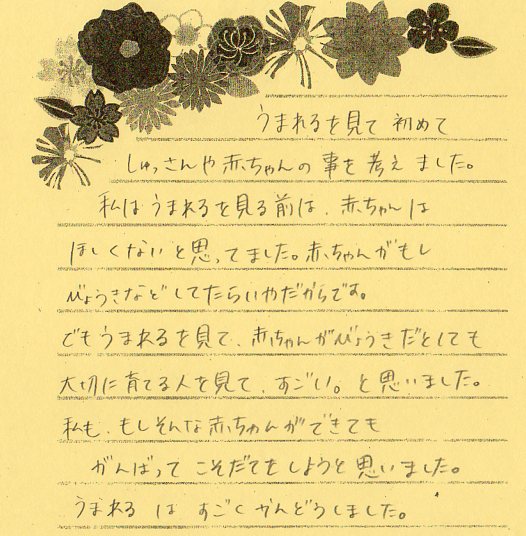 うまれるを見て 初めて
しゅっさんや赤ちゃんの事を考えました。
私はうまれるを見る前は、赤ちゃんは
ほしくないと思ってました。赤ちゃんがもし
びょうきなどしてたらいやだからです。
でもうまれるを見て、赤ちゃんがびょうきだとしても
大切に育てる人を見て、すごい。と思いました。
私も、もしそんな赤ちゃんができても
がんばって こそだてをしようと思いました。
うまれる は すごくかんどうしました。